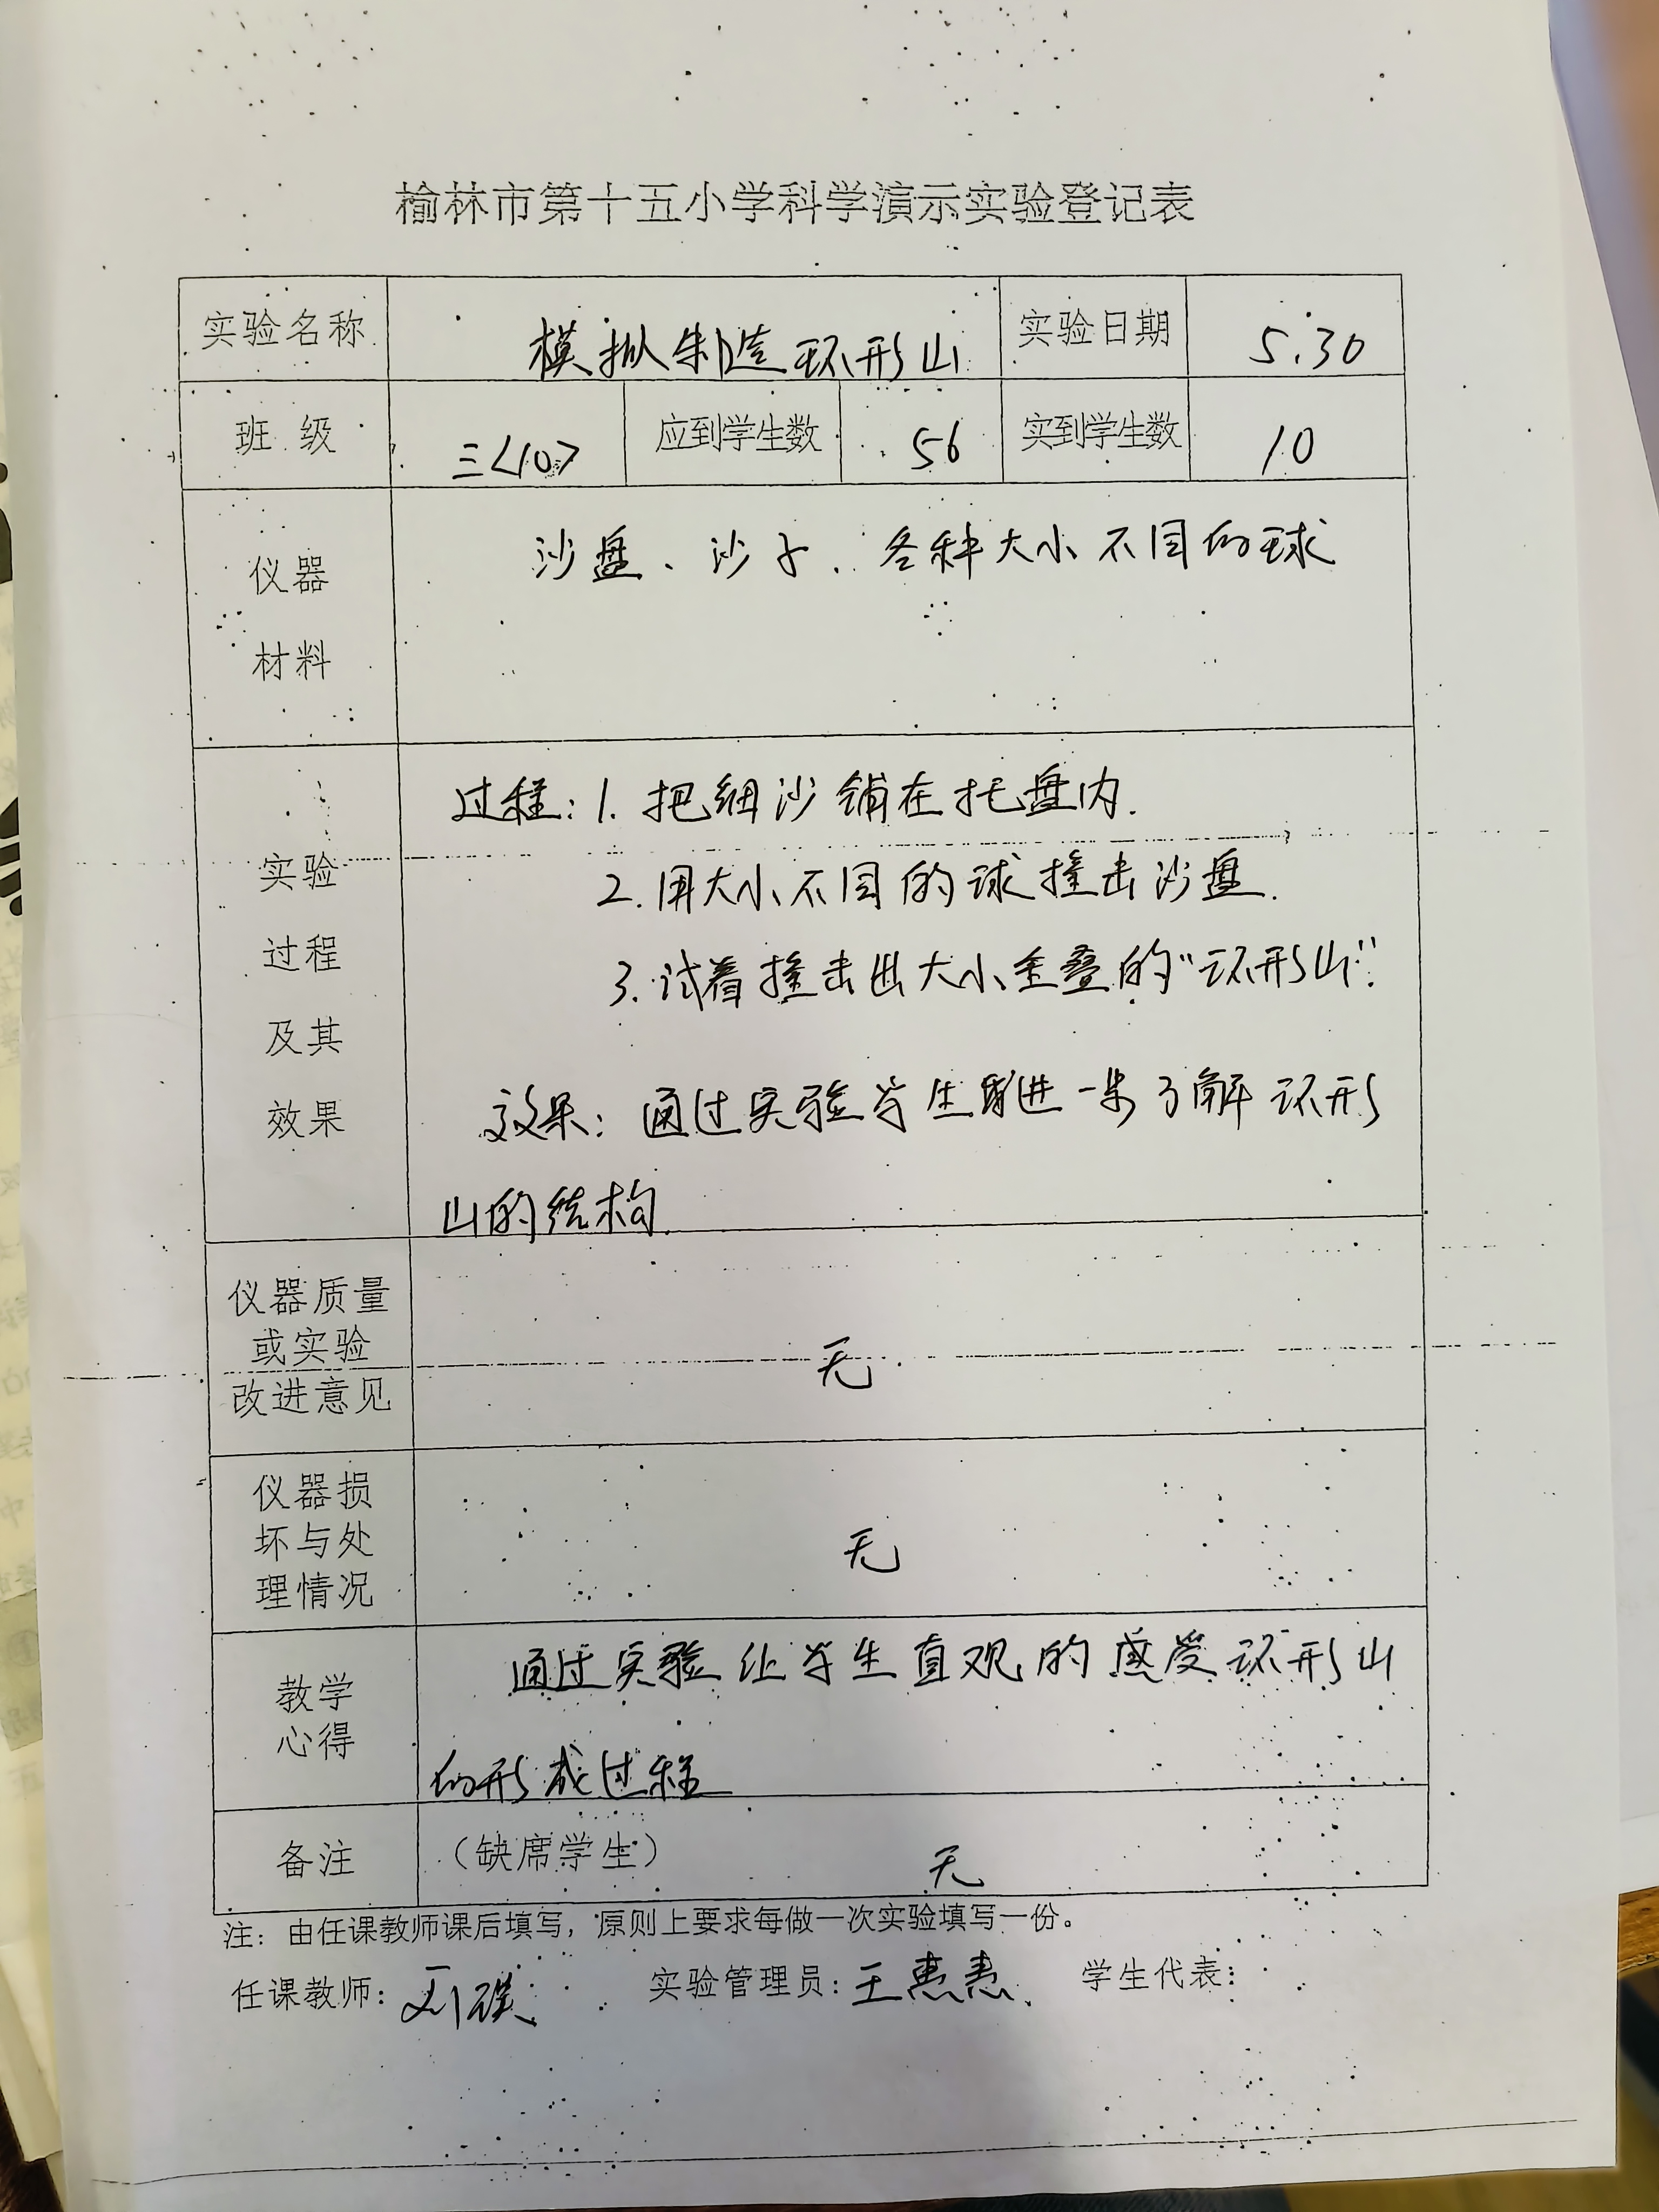 榆林市第十五小学科学演示实验登记表
实验名称 模拟制造环形山 实验日期 5.30
班 级 三<10> 应到学生数 56 实到学生数 10
仪器
材料
沙盘、沙子、各种大小不同的球
实验
过程
及其
效果
过程:1. 把细沙铺在托盘内.
2. 用大小不同的球撞击沙盘.
3. 试着撞击出大小重叠的“环形山”.
效果:通过实验学生进一步了解环形
山的结构.
仪器质量
或实验
改进意见
无
仪器损
坏与处
理情况
无
教学
心得
通过实验让学生直观的感受环形山
的形成过程
备注 (缺席学生) 无
注:由任课教师课后填写,原则上要求每做一次实验填写一份。
任课教师:刘 实验管理员:王惠惠 学生代表: